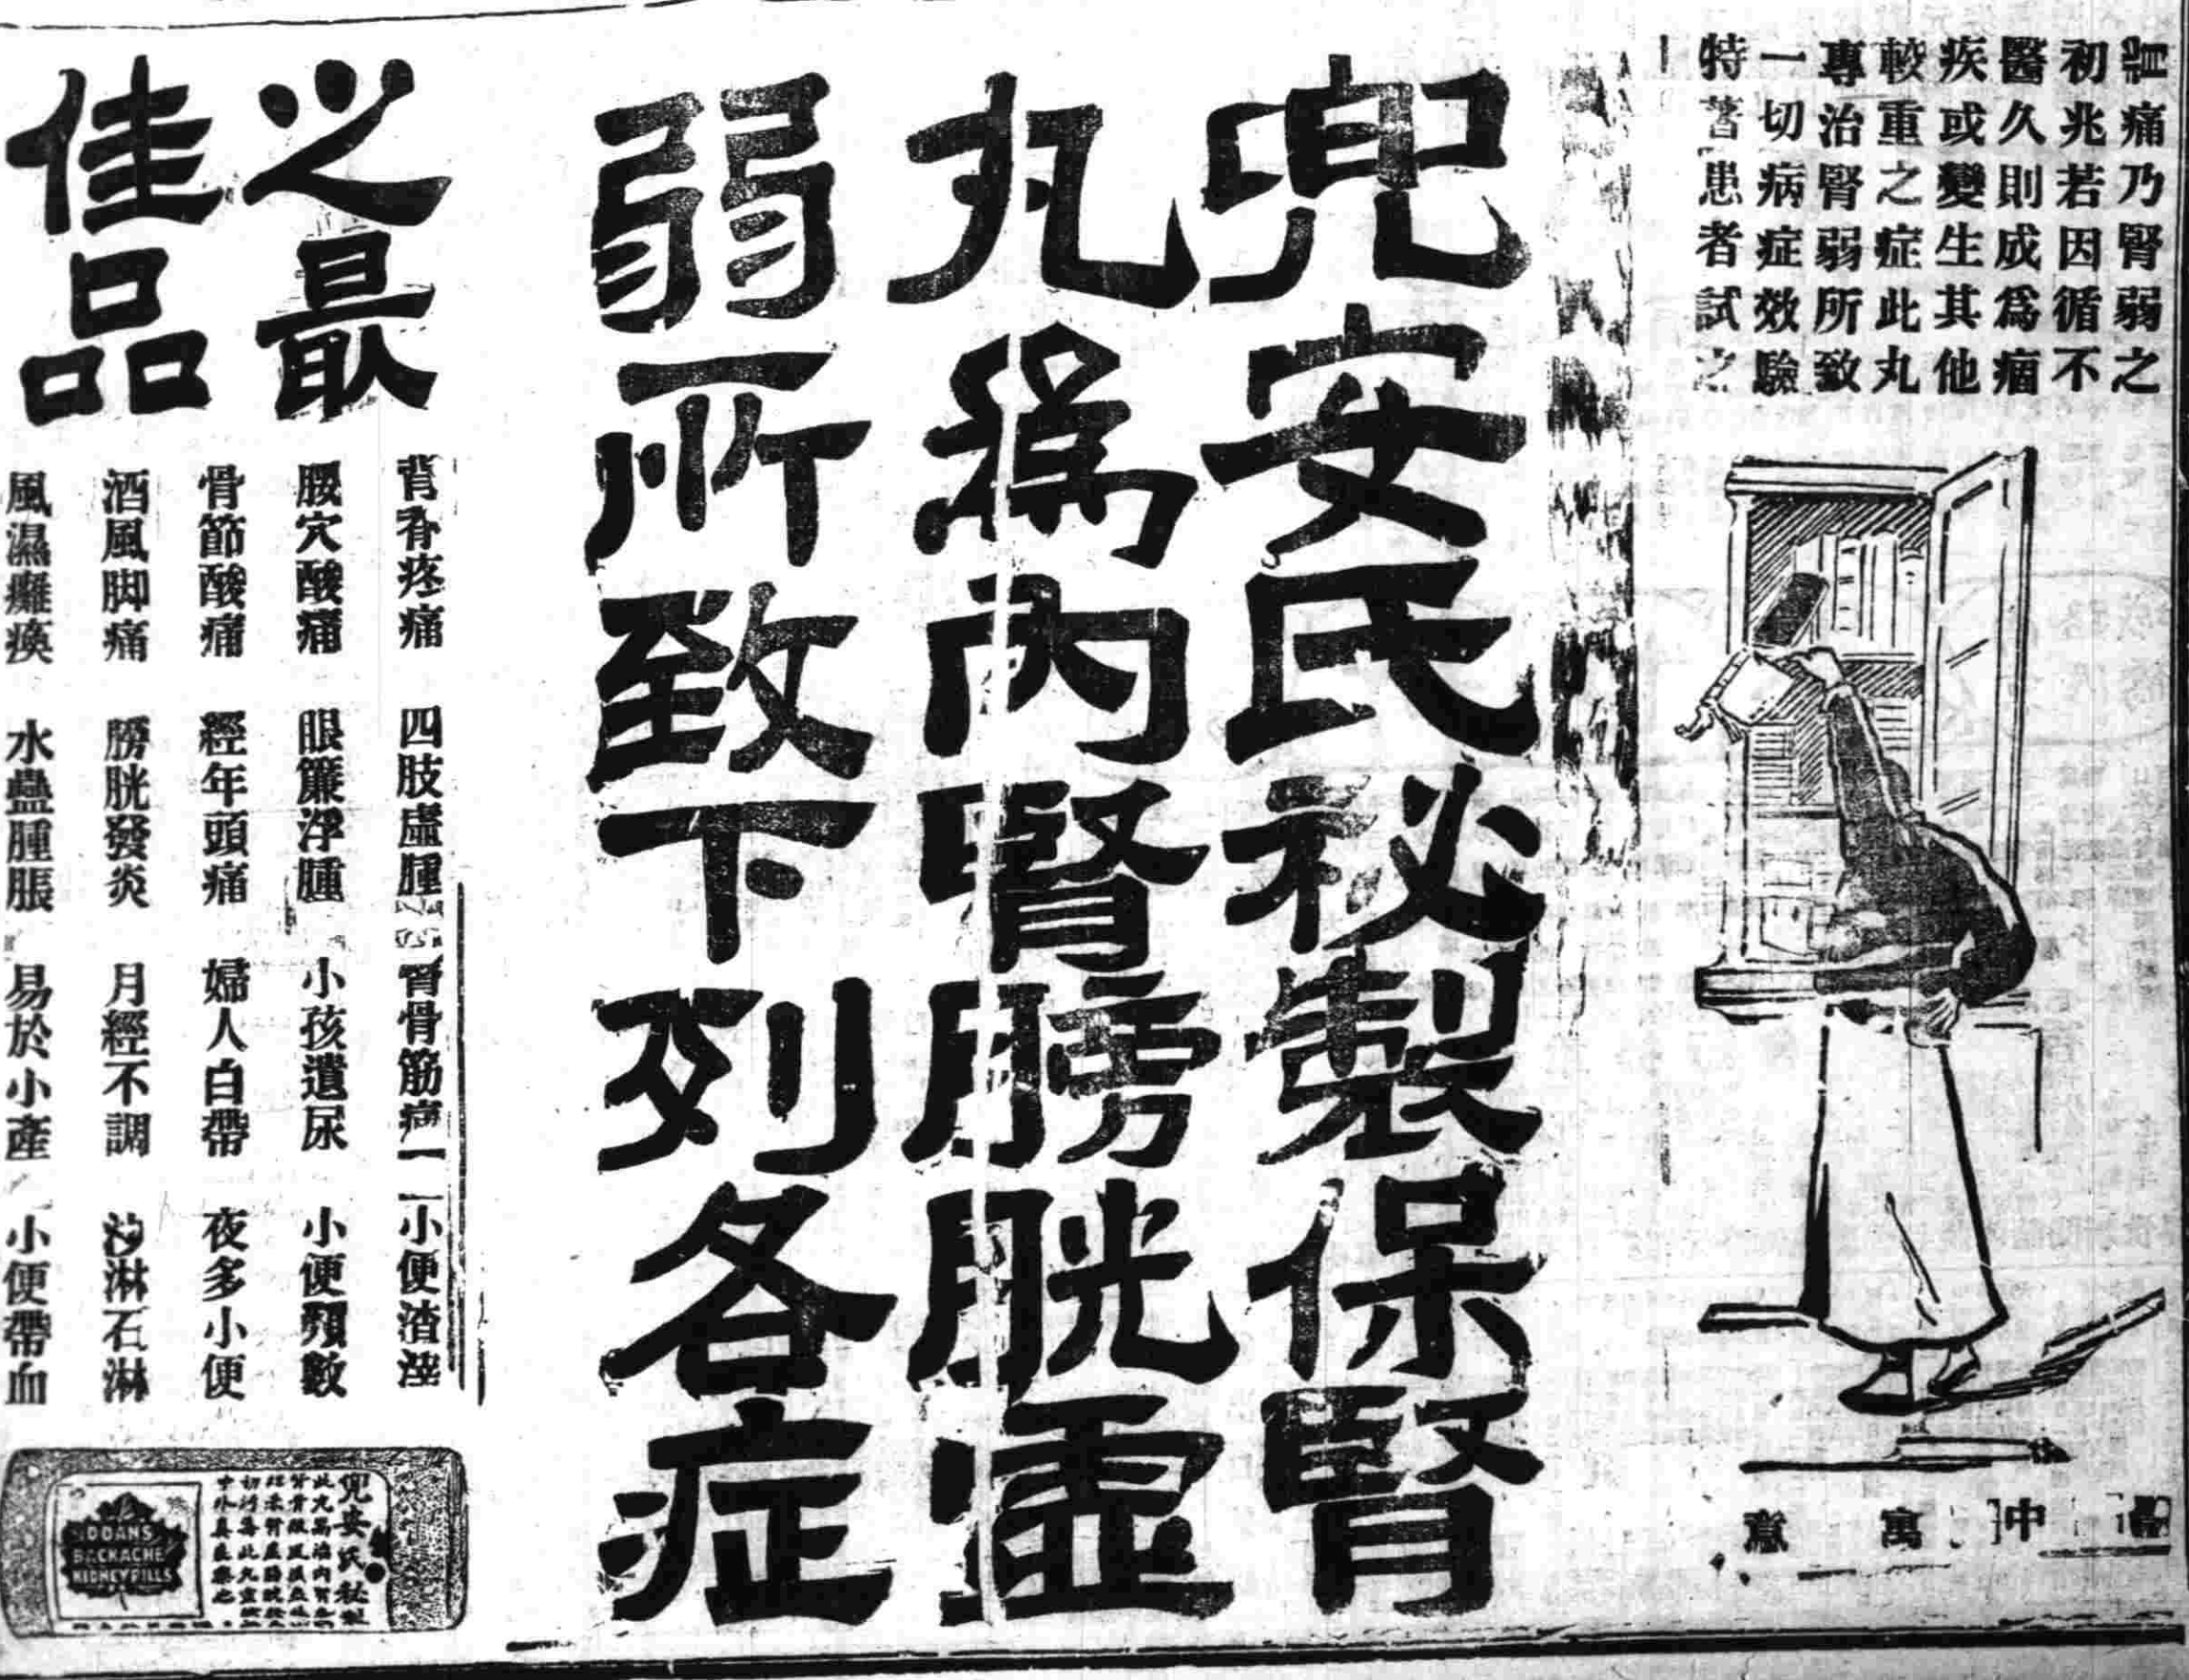 痛乃腎弱之
初兆若因循不
醫久則成爲痼
疾或變生其他
較重之症此丸
專治腎弱所致
一切病症效驗
特著患者試之
中寓意
兜安氏祕製保腎
丸爲內腎膀胱虛
弱所致下列各症
之最
佳品
背脊疼痛 四肢虛腫 骨筋痛 小便渣滓
腰穴酸痛 眼簾浮腫 小孩遺尿 小便頻數
骨節酸痛 經年頭痛 婦人白帶 夜多小便
酒風脚痛 膀胱發炎 月經不調 沙淋石淋
風濕癱瘓 水蠱腫脹 易於小產 小便帶血
兜安氏秘製
DOANS
BACKACHE
KIDNEY PILLS